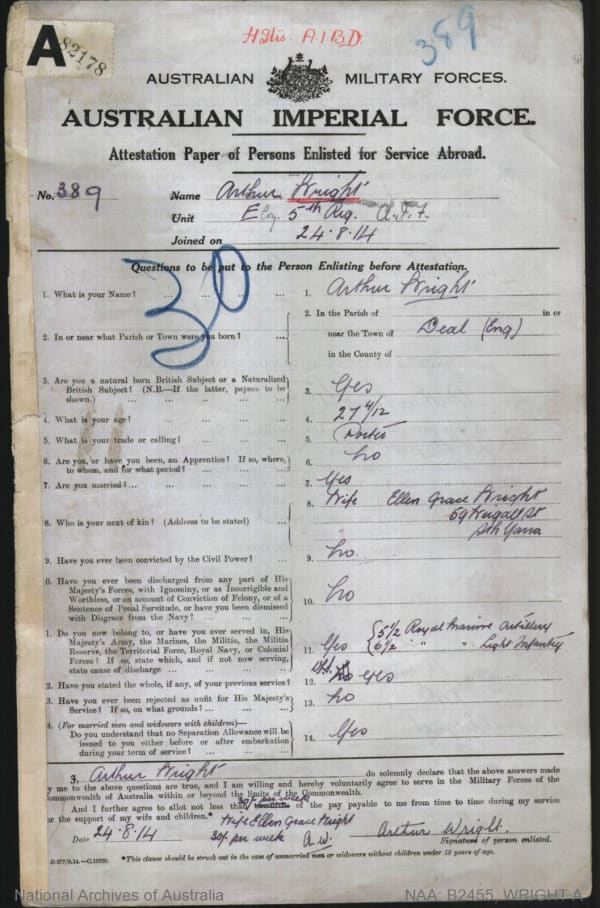 A 82178
H Qtrs. A.I.B.D.
389
AUSTRALIAN MILITARY FORCES.
AUSTRALIAN IMPERIAL FORCE.
Attestation Paper of Persons Enlisted for Service Abroad.
No. 389 Name Arthur Wright
Unit E Coy. 5th Reg. A.I.F.
Joined on 24.8.14
30
Questions to be put to the Person Enlisting before Attestation.
1. What is your Name? ... ... ... ... 1. Arthur Wright
2. In or near what Parish or Town were you born? ... 2. In the Parish of in or
near the Town of Deal (Eng)
in the County of
3. Are you a natural born British Subject or a Naturalized
British Subject? (N.B.—If the latter, papers to be
shown.) ... ... ... ... ... 3. Yes
4. What is your age? ... ... ... ... 4. 27 4/12
5. What is your trade or calling? ... ... ... 5. Porter
6. Are you, or have you been, an Apprentice? If so, where,
to whom, and for what period? ... ... ... 6. No
7. Are you married? ... ... ... ... 7. Yes
8. Who is your next of kin? (Address to be stated) ... 8. Wife Ellen Grace Wright
59 St
Sth Yarra
9. Have you ever been convicted by the Civil Power? ... 9. No.
0. Have you ever been discharged from any part of His
Majesty's Forces, with Ignominy, or as Incorrigible and
Worthless, or on account of Conviction of Felony, or of a
Sentence of Penal Servitude, or have you been dismissed
with Disgrace from the Navy? ... ... ... 10. No
1. Do you now belong to, or have you ever served in, His
Majesty's Army, the Marines, the Militia, the Militia
Reserve, the Territorial Force, Royal Navy, or Colonial
Forces? If so, state which, and if not now serving,
state cause of discharge ... ... ... ... 11. Yes { 5 1/2 Royal Marine Artillery
6 1/2 " " Light Infantry
2. Have you stated the whole, if any, of your previous service? 12. No yes
3. Have you ever been rejected as unfit for His Majesty's
Service? If so, on what grounds? ... ... ... 13. No
4. (For married men and widowers with children)—
Do you understand that no Separation Allowance will be
issued to you either before or after embarkation
during your term of service? ... ... ... 14. Yes
3, Arthur Wright do solemnly declare that the above answers made
by me to the above questions are true, and I am willing and hereby voluntarily agree to serve in the Military Forces of the
Commonwealth of Australia within or beyond the limits of the Commonwealth.
30/- per week
And I further agree to allot not less than of the pay payable to me from time to time during my service
for the support of my wife and children.* Wife Ellen Grace Wright
Date 24.8.14 30/- per week A.W. Arthur Wright.
Signature of person enlisted.
D.277/8.14.—C.10239. *This clause should be struck out in the case of unmarried men or widowers without children under 18 years of age.
National Archives of Australia NAA: B2455, WRIGHT A